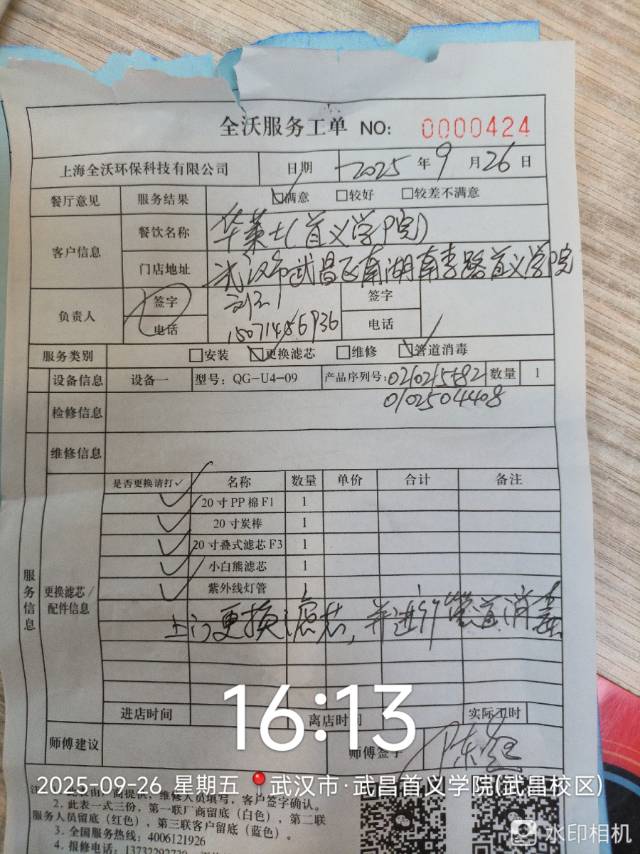 全沃服务工单 NO: 0000424
上海全沃环保科技有限公司 日期 2025 年 9 月 26 日
餐厅意见 服务结果 ☑满意 □较好 □较差不满意
客户信息 餐饮名称 华莱士(首义学院)
门店地址 武汉市武昌区南湖南李路首义学院
负责人 签字 签字
电话 15071486936 电话
服务类别 □安装 ☑更换滤芯 □维修 ☑管道消毒
设备信息 设备一 型号: QG-U4-09 产品序列号: 0210215582 数量 1
0102504408
检修信息
维修信息
服务信息 更换滤芯/配件信息
是否更换请打✓ 名称 数量 单价 合计 备注
✓ 20寸PP棉F1 1
✓ 20寸炭棒 1
✓ 20寸叠式滤芯F3 1
✓ 小白熊滤芯 1
✓ 紫外线灯管 1
上门更换滤芯,并进行管道消毒
进店时间 离店时间 实际工时
师傅建议 师傅签字
16:13
2025-09-26 星期五 武汉市·武昌首义学院(武昌校区)
2. 此表一式三份,第一联厂商留底(白色),第二联
服务人员留底(红色),第三联客户留底(蓝色)。
3. 全国服务热线: 4006121926
4. 报修电话:
水印相机